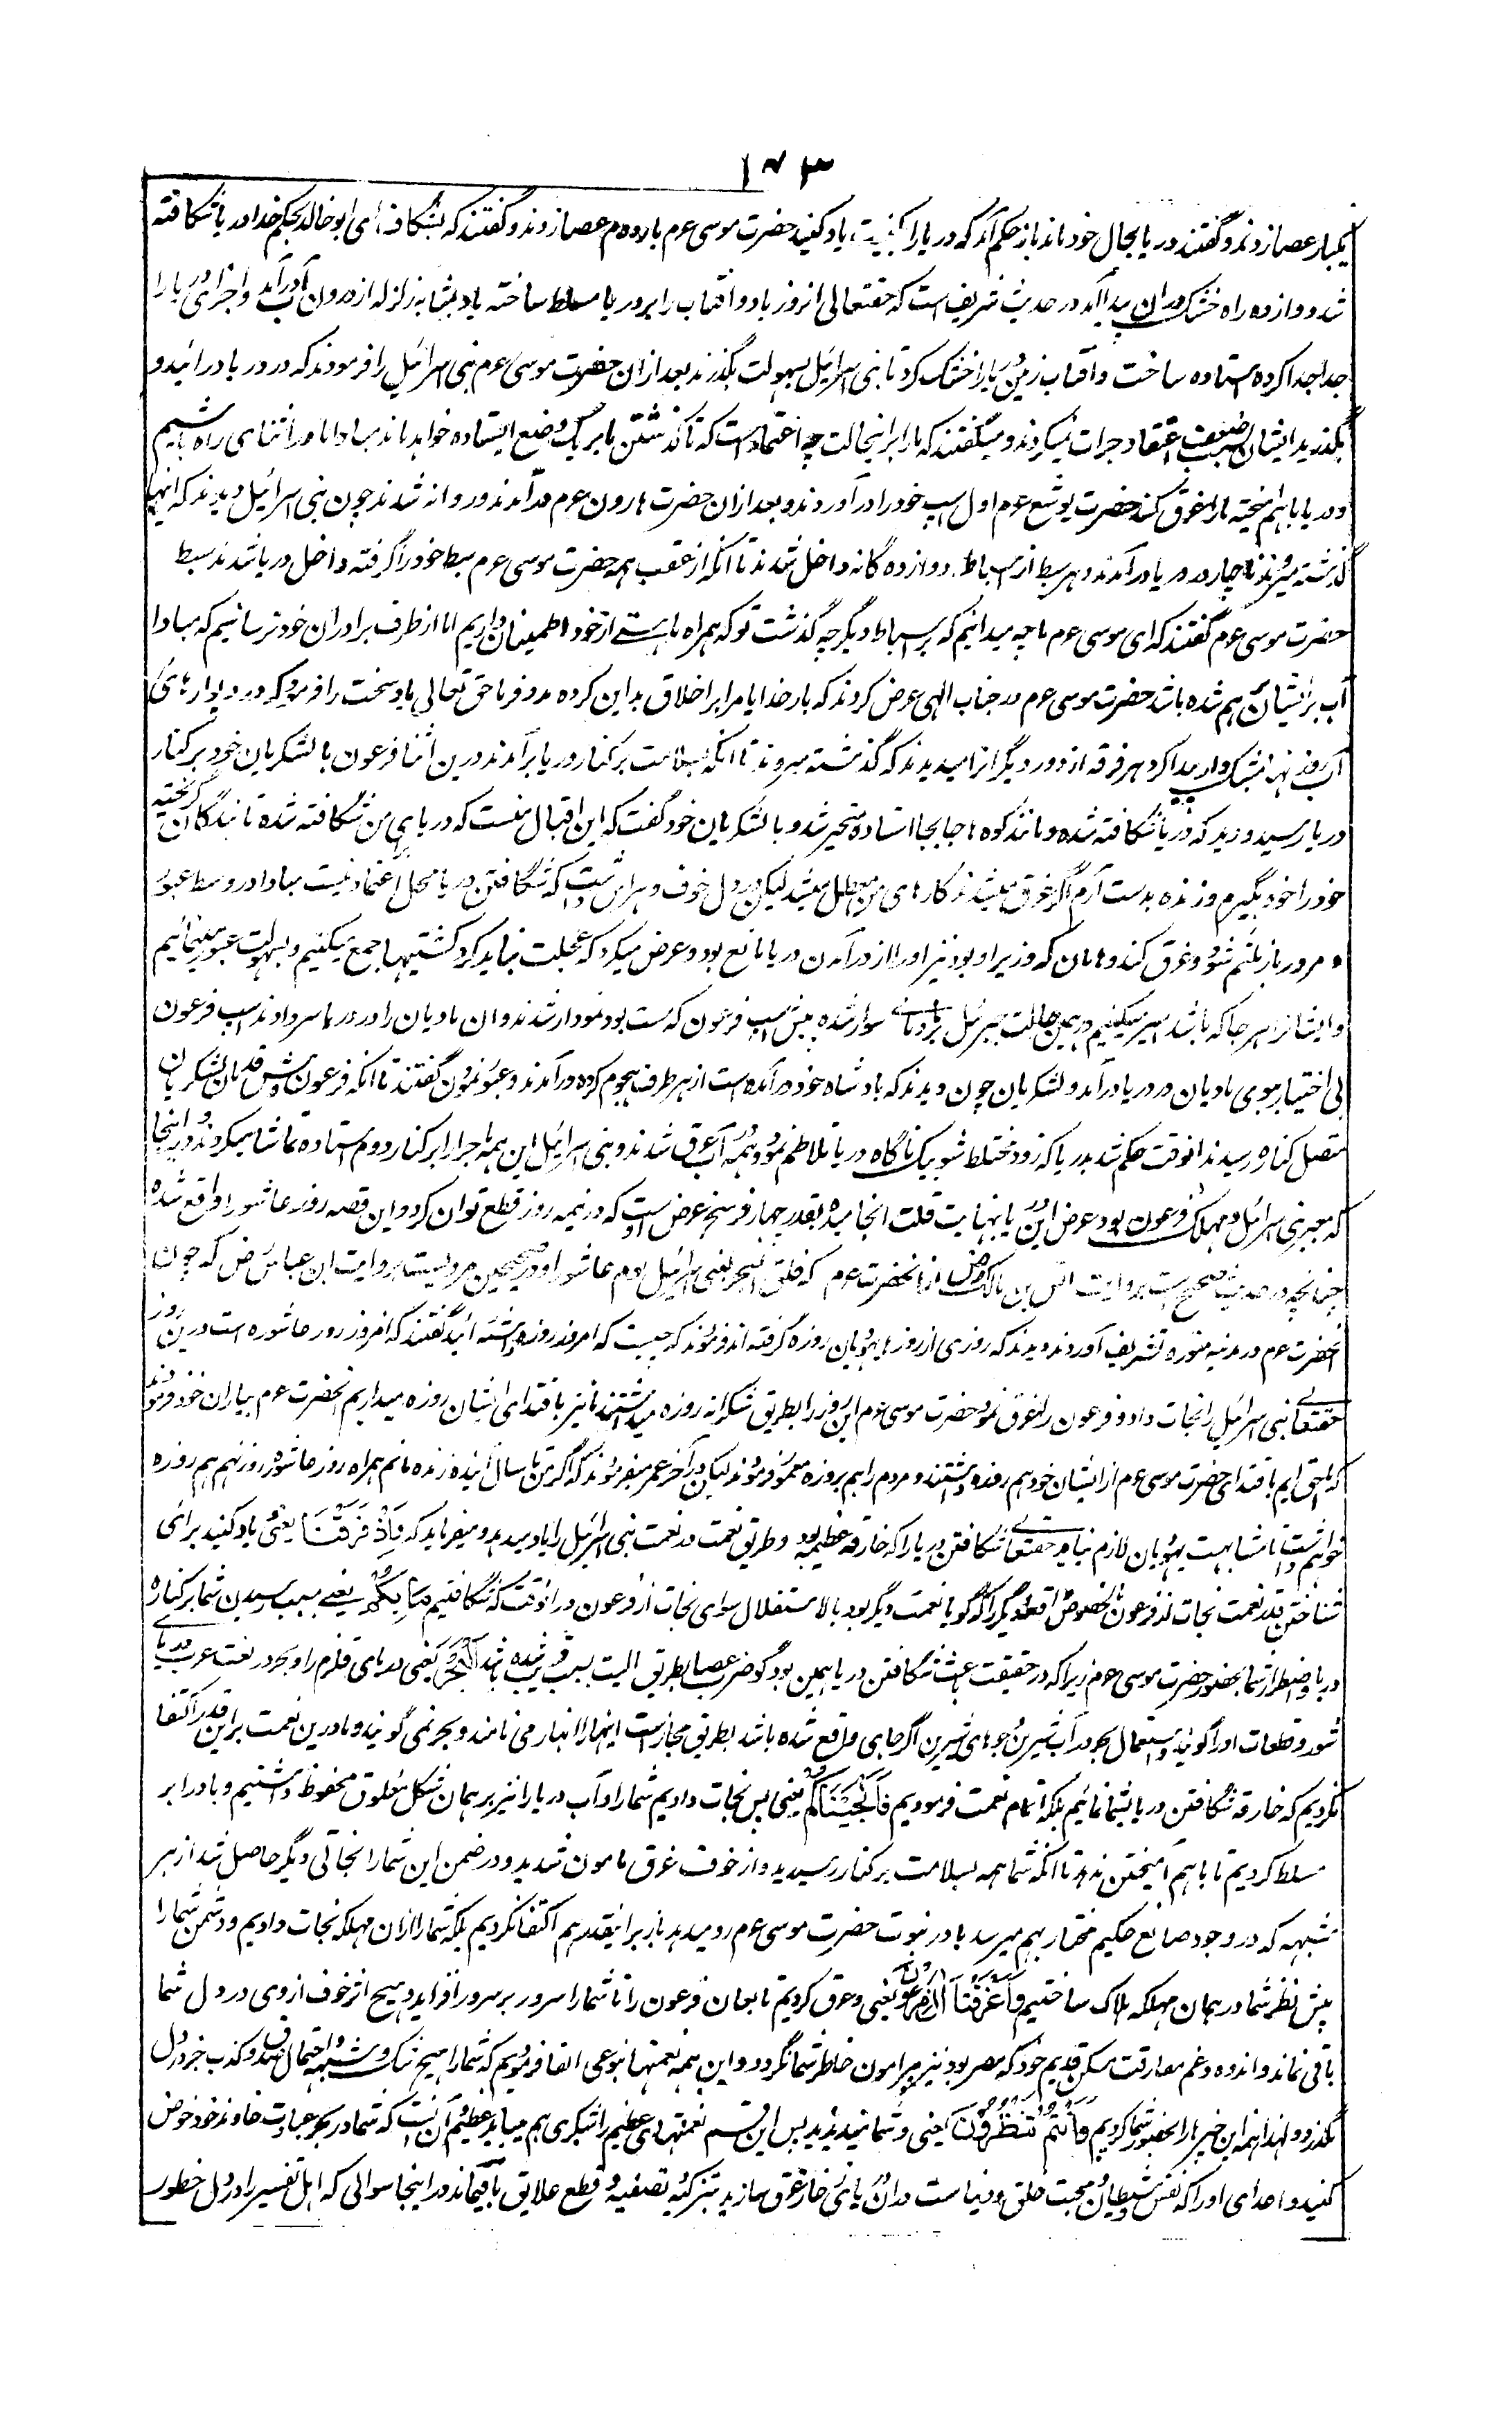 ۱۷۳
یکبار عصا زدند و گفتند دریا بحال خود ماند باز حکم آمد که دریا را بکنیت یاد کنید حضرت موسی عوم بار دوم عصا زدند و گفتند که بشگاف ای ابو خالد بحکم خدا دریا شگافته
شد و دوازده راه خشک دران پیدا آمد در حدیث شریف است که حقتعالی انروز باد و آفتاب را بر دریا مسلط ساخته باد بمشابه زلزله از درون آب درآمد و اجزای دریا را
جدا جدا کرده استاده ساخت و آفتاب زمین دریا را خشک کرد تا بنی اسرائیل بسهولت بگذرند بعد ازان حضرت موسی عوم بنی اسرائیل را فرمودند که در دریا درائید و
بگذرید ایشان بسبب ضعف اعتقاد جرات نمیکردند و میگفتند که ما را بر اینحالت چه اعتماد است که تا گذشتن ما بر یک وضع ایستاده خواهد ماند مبادا ما در اثنای راه باشیم
و دریا باهم آمیخته ما را غرق کند حضرت یوشع عوم اول اسپ خود را درآوردند و بعد ازان حضرت هارون عوم درآمدند و روانه شدند چون بنی اسرائیل دیدند که اینها
گذشته میروند ناچار در دریا درآمدند و هر سبط از اسباط دوازده گانه داخل شدند تا آنکه از عقب همه حضرت موسی عوم سبط خود را گرفته داخل دریا شدند سبط
حضرت موسی عوم گفتند که ای موسی عوم ما چه میدانیم که بر اسباط دیگر چه گذشت تو که همراه ما هستی از خود اطمینان داریم اما از طرف برادران خود ترسانیم که مبادا
آب بر ایشان بهم شده باشد حضرت موسی عوم در جناب الهی عرض کردند که بار خدایا مرا بر اخلاق بد این گروه مدد فرما حق تعالی باد سخت را فرمود که در دیوارهای
آب روزنها مشبک وار پیدا کرد هر فرقه از دور دیگر انرا میدیدند که گذشته میروند تا آنکه بسلامت بر کنار دریا برآمدند درین اثنا فرعون با لشکریان خود بر کنار
دریا رسید و دید که دریا شگافته شده و مانند کوه ها جابجا استاده متحیر شد و با لشکریان خود گفت که این اقبال منست که دریا برای من شگافته شده تا بندگان گریخته
خود را خود بگیرم و زنده بدست آرم اگر غرق میشدند کارهای من معطل میشد لیکن در دل خوف و هراس داشت که شگافتن دریا محل اعتماد نیست مبادا در وسط عبور
و مرور باز ملتئم شود و غرق کند و هامان که وزیر او بود نیز او را از درآمدن دریا مانع بود و عرض میکرد که عجلت نباید کرد کشتیها جمع میکنیم و بسهولت عبور مینمائیم
و ایشانرا هر جا که باشند اسیر میکنیم در همین حالت جبرئیل بر مادیانے سوار شده پیش اسپ فرعون که مست بود نمودار شدند و ان مادیان را در دریا سر دادند اسپ فرعون
بی اختیار بسوی مادیان در دریا درآمد و لشکریان چون دیدند که بادشاه خود درآمده است از هر طرف هجوم کرده درآمدند و عبور نمودن گفتند تا آنکه فرعون و پیش قدمان لشکریان
متصل کناره رسیدند انوقت حکم شد بدریا که زود مختلط شو بیک ناگاه دریا تلاطم نمود و همه در آب غرق شدند و بنی اسرائیل این همه ماجرا را بر کنار دوم استاده تماشا میکردند و در اینجا
که معبر بنی اسرائیل و مهلک فرعون بود عرض این دریا بنهایت قلت انجامیده بقدر چهار فرسخ عرض است که در نیمه روز قطع توان کرد و این قصه روز عاشورا واقع شده
چنانچه در حدیث صحیح است بروایت انس بن مالک رض از انحضرت عوم که فلق البحر لبنی اسرائیل یوم عاشورا و در صحیحین مرویست بروایت ابن عباس رض که چون
انحضرت عوم در مدینه منوره تشریف آوردند دیدند که روزی از روزها یهودیان روزه گرفته اند فرمودند که چیست که امروز روزه داشته اید گفتند که امروز روز عاشوره است درین روز
حقتعالے بنی اسرائیل را نجات داد و فرعون را غرق نمود حضرت موسی عوم این روز را بطریق شکرانه روزه میداشتند ما نیز باقتدای ایشان روزه میداریم انحضرت عوم بیاران خود فرمودند
که ما احق ایم باقتدای حضرت موسی عوم از ایشان خود هم روزه داشتند و مردم را هم بروزه معمور فرمودند لیکن در آخر عمر میفرمودند که اگر من تا سال آینده زنده مانم همراه روز عاشورا روز نهم هم روزه
خواهم داشت تا مشابهت یهودیان لازم نیاید حقتعالے شگافتن دریا را که خارقه عظیمه بود و طریق نعمت در نعمت بنی اسرائیل را یاد میدهد و میفرماید که وَإِذْ فَرَقْنَا یعنی یاد کنید برای
شناختن قدر نعمت نجات از فرعون بالخصوص واقعه دیگر را که گویا نعمت دیگر بود بالاستقلال سوای نجات از فرعون در انوقت که شگافتیم بِكُمُ یعنے بسبب رسیدن شما بر کناره
دریا و اضطرار شما بحضور حضرت موسی عوم زیرا که در حقیقت باعث شگافتن دریا همین بود گو ضرب عصا بطریق آلیت سبب قریب شده باشد الْبَحْرَ یعنی دریای قلزم را و بحر در لغت عرب دریای
شور و قطعات او را گویند و استعمال بحر در آب شیرین و جوهای شیرین اگر جای واقع شده باشد بطریق مجاز است اینها را انهار می نامند و بحر نمی گویند و ما درین نعمت بر این قدر اکتفا
نکردیم که خارقه شگافتن دریا بشما نمائیم بلکه اتمام نعمت فرمودیم فَأَنْجَيْنَاكُمْ یعنی پس نجات دادیم شما را و آب دریا را نیز بر همان شکل مفلوق محفوظ داشتیم و باد را بر
مسلط کردیم تا باهم آمیختن ندهد تا آنکه شما همه بسلامت بر کنار رسیدید و از خوف غرق مامون شدید و در ضمن این شما را نجاتی دیگر حاصل شد از هر
شبهه که در وجود صانع حکیم مختار بهم میرسد یا در نبوت حضرت موسی عوم رو میدهد باز بر اینقدر هم اکتفا نکردیم بلکه شما را ازان مهلکه نجات دادیم و دشمن شما را
پیش نظر شما در همان مهلکه هلاک ساختیم وَأَغْرَقْنَا آلَ فِرْعَوْنَ یعنی و غرق کردیم تابعان فرعون را تا شما را سرور بر سرور افزاید و هیچ اثر خوف از وی در دل شما
باقی نماند و اندوه و غم مفارقت مسکن قدیم خود که مصر بود نیز پیرامون خاطر شما نگردد و این همه نعمتها بنوعی القا فرمودیم که شما را هیچ شک و شبهه و احتمال صدق و کذب خبر در دل
نگذرد و لهذا اینهمه این خبرها را بحضور شما کردیم وَأَنْتُمْ تَنْظُرُونَ یعنی و شما نیز میدیدید پس این قسم نعمتهای عظیم را شکری هم میباید عظیم و آن اینست که شما در بحر عبادت خداوند خود خوض
کنید و اعدای او را که نفس و شیطان و محبت خلق و دنیاست دران دریای خار غرق سازید بتزکیه و تصفیه و قطع علایق باقیماند در اینجا سوالی که اهل تفسیر را در دل خطور